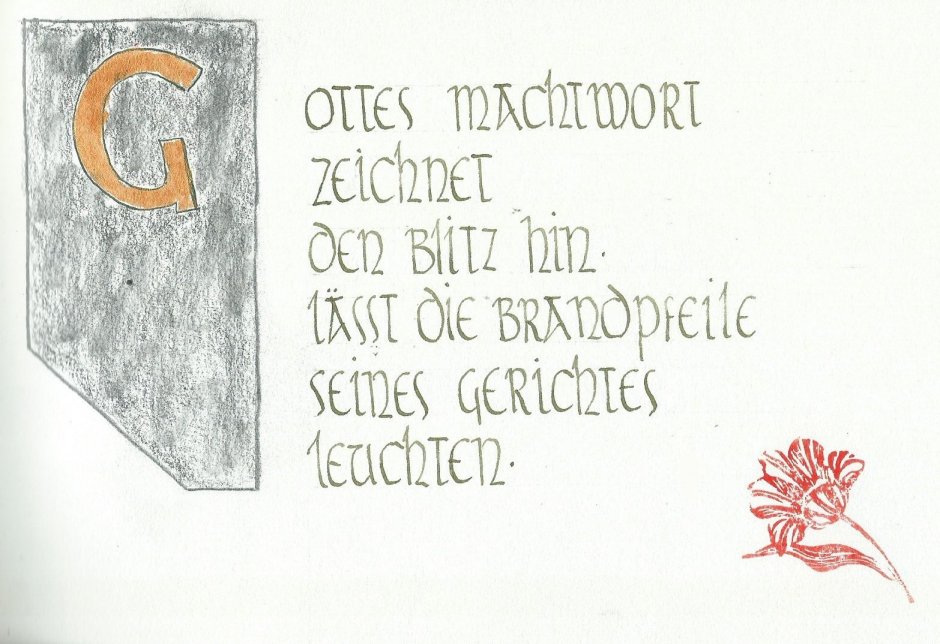 GOTTES MACHTWORT
ZEICHNET
DEN BLITZ HIN.
LÄSST DIE BRANDPFEILE
SEINES GERICHTES
LEUCHTEN.